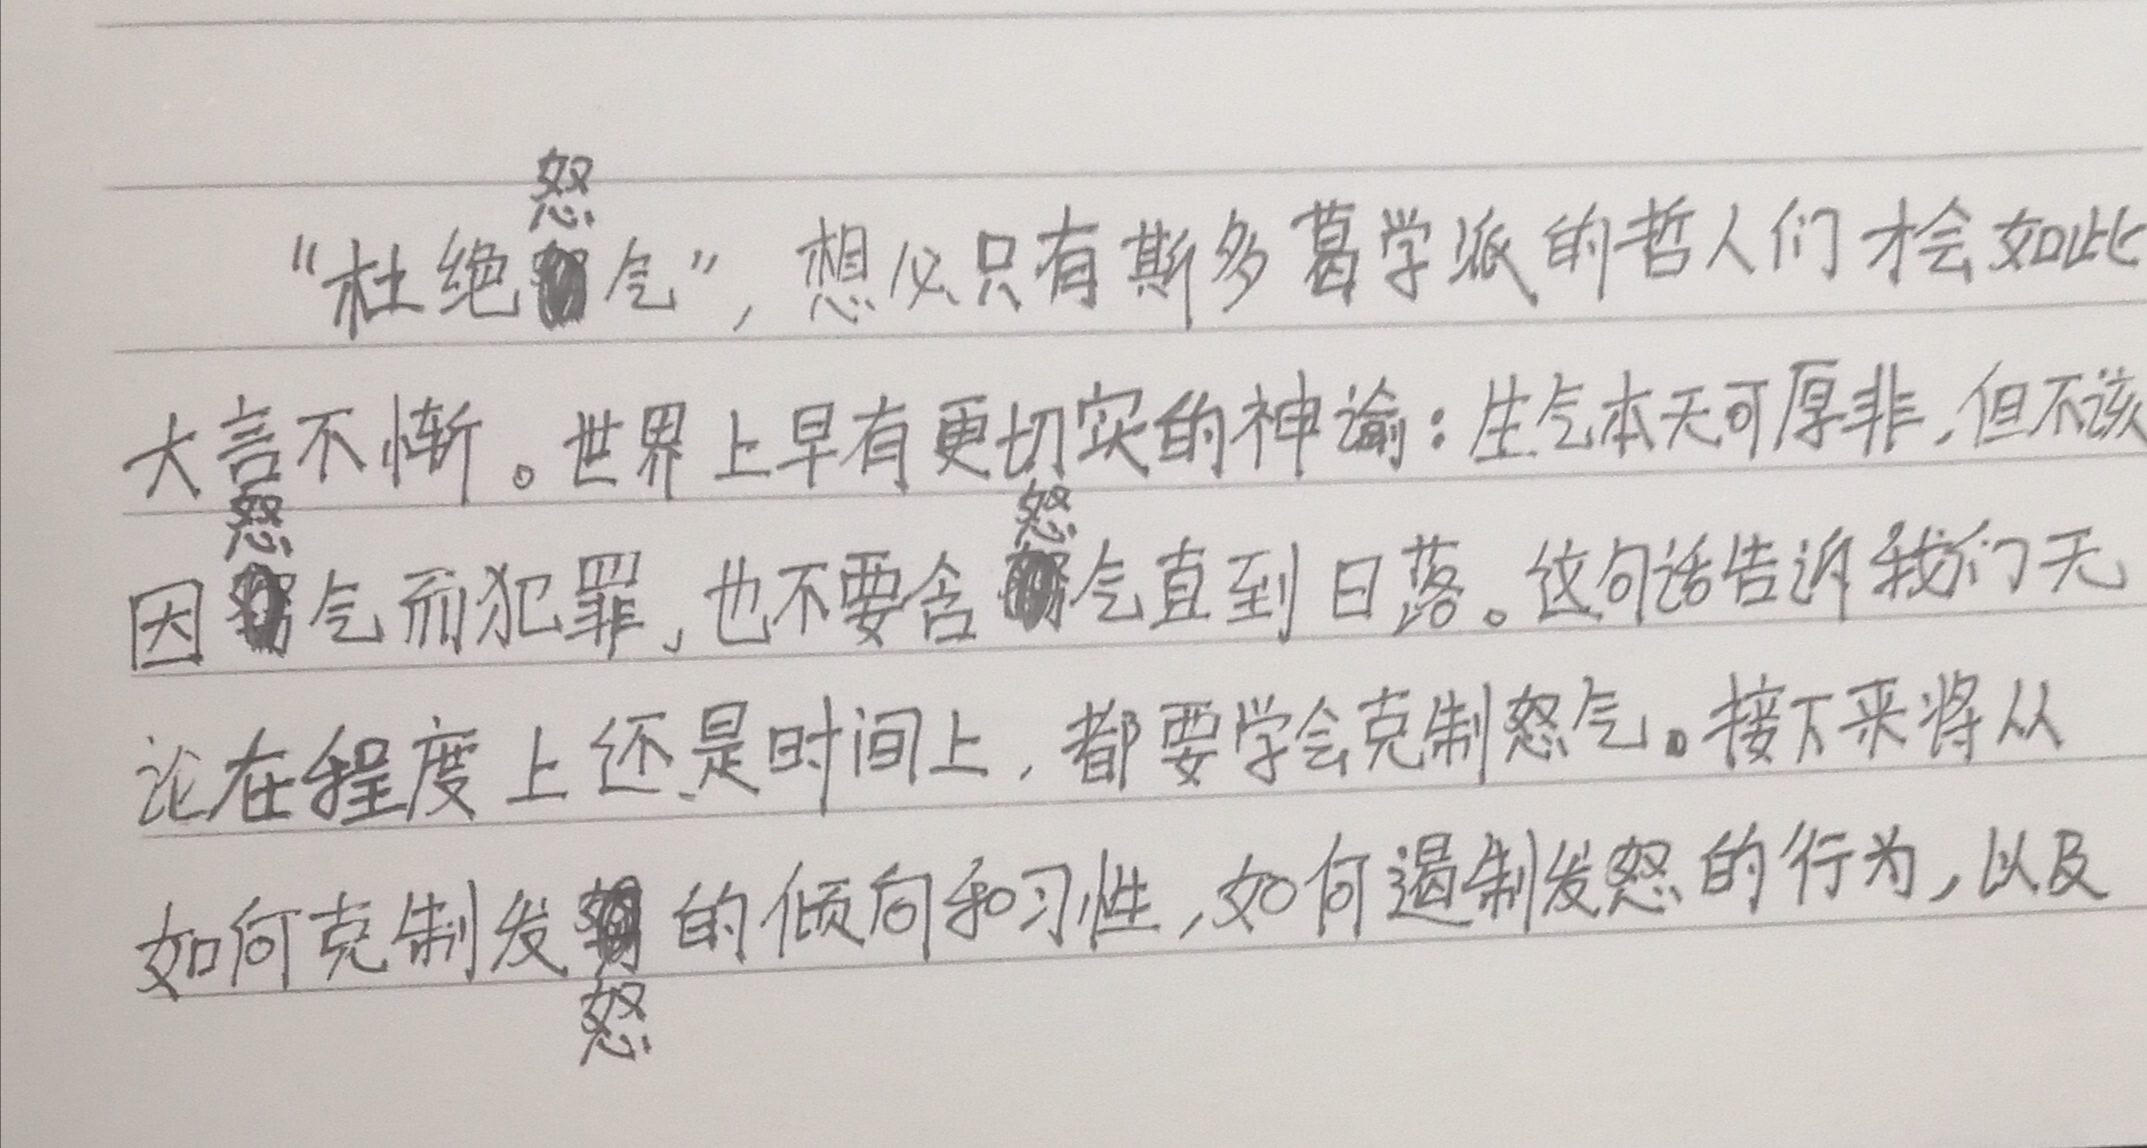 “杜绝怒气”，想必只有斯多葛学派的哲人们才会如此
大言不惭。世界上早有更切实的神谕：生气本无可厚非，但不该
因怒气而犯罪，也不要含怒气直到日落。这句话告诉我们无
论在程度上还是时间上，都要学会克制怒气。接下来将从
如何克制发怒的倾向和习性，如何遏制发怒的行为，以及